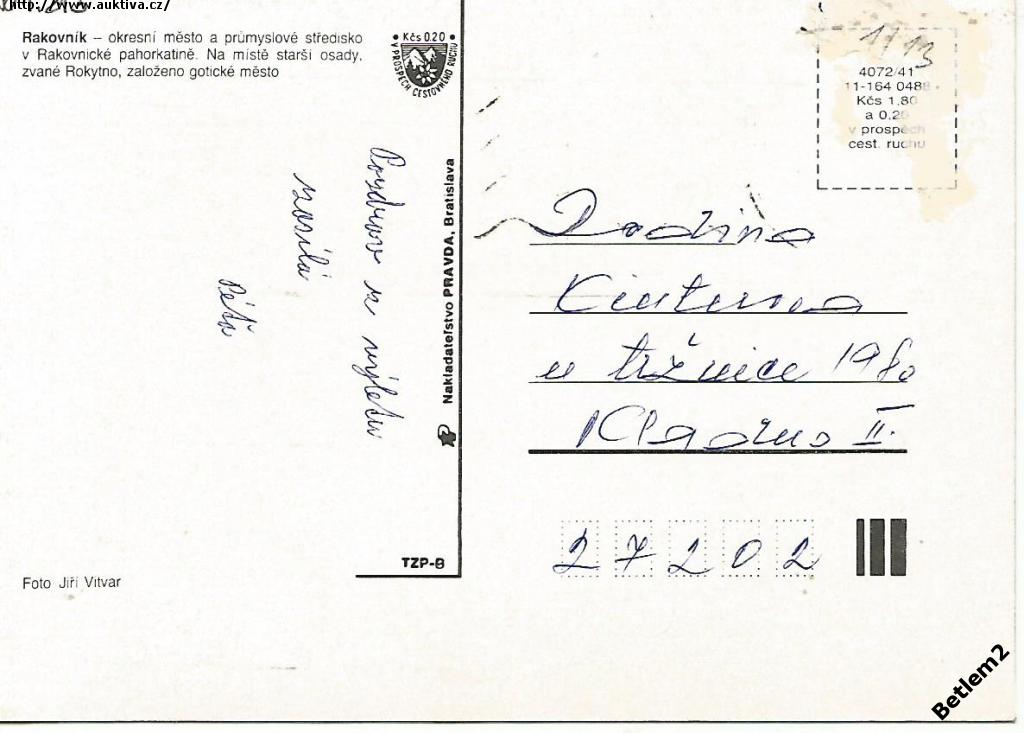 http://www.auktiva.cz/
Rakovník – okresní město a průmyslové středisko
v Rakovnické pahorkatině. Na místě starší osady,
zvané Rokytno, založeno gotické město
Kčs 0.20
V PROSPĚCH CESTOVNÉHO RUCHU
Pozdrav z výletu
zasílá
Péťa
Nakladateľstvo PRAVDA, Bratislava
TZP-8
Foto Jiří Vitvar
1/13
4072/41
11-164 0488
Kčs 1,80
a 0,20
v prospěch
cest. ruchu
Rodina
u tržnice 1980
Kladno II.
27202
Betlem2